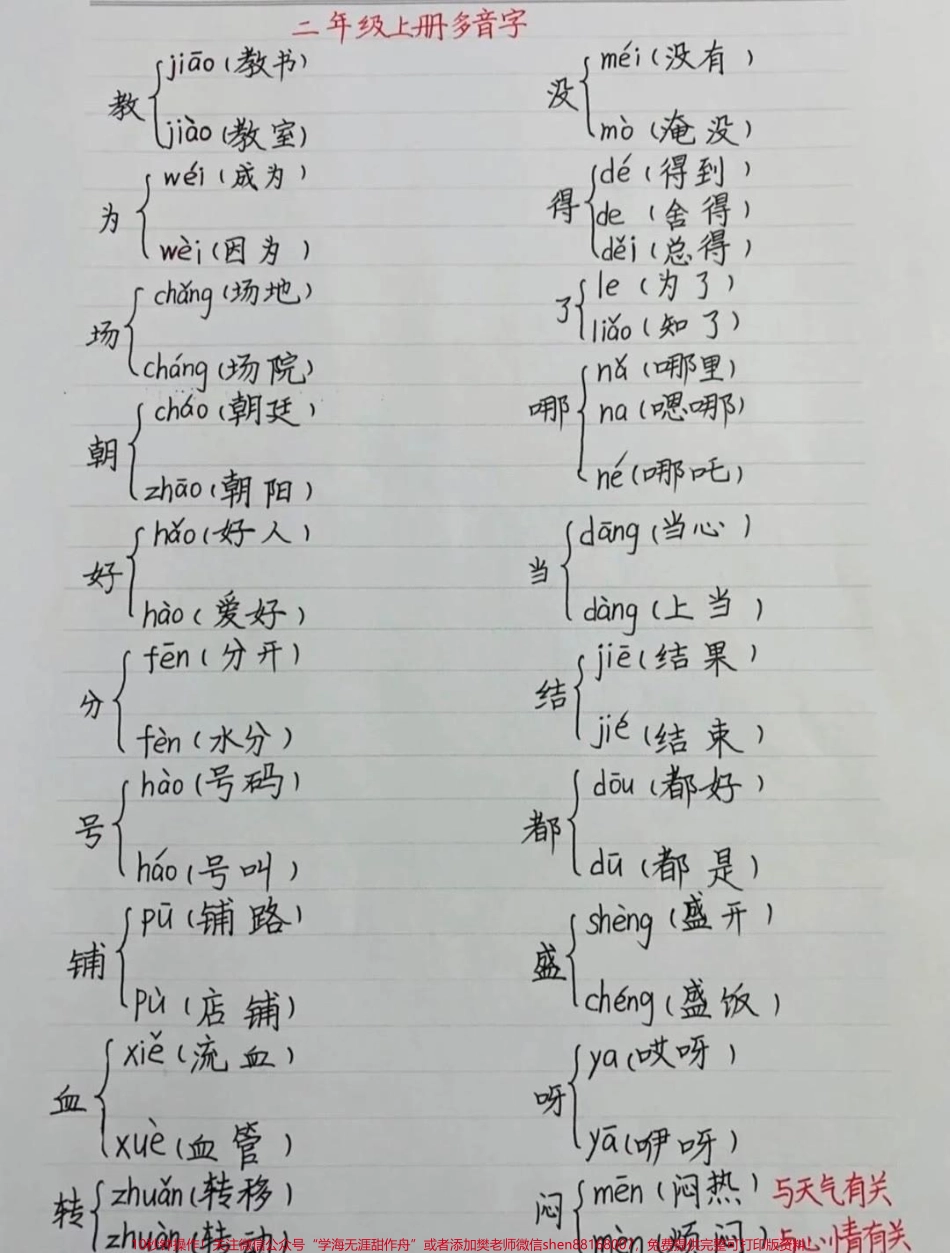 二年级上册多音字
教
jiāo(教书)
jiào(教室)
为
wéi(成为)
wèi(因为)
场
chǎng(场地)
cháng(场院)
朝
cháo(朝廷)
zhāo(朝阳)
好
hǎo(好人)
hào(爱好)
分
fēn(分开)
fèn(水分)
号
hào(号码)
háo(号叫)
铺
pū(铺路)
pù(店铺)
血
xiě(流血)
xuè(血管)
转
zhuǎn(转移)
没
méi(没有)
mò(淹没)
得
dé(得到)
de(舍得)
děi(总得)
了
le(为了)
liǎo(知了)
哪
nǎ(哪里)
na(嗯哪)
né(哪吒)
当
dāng(当心)
dàng(上当)
结
jiē(结果)
jié(结束)
都
dōu(都好)
dū(都是)
盛
shèng(盛开)
chéng(盛饭)
呀
ya(哎呀)
yā(咿呀)
闷
mēn(闷热)与天气有关